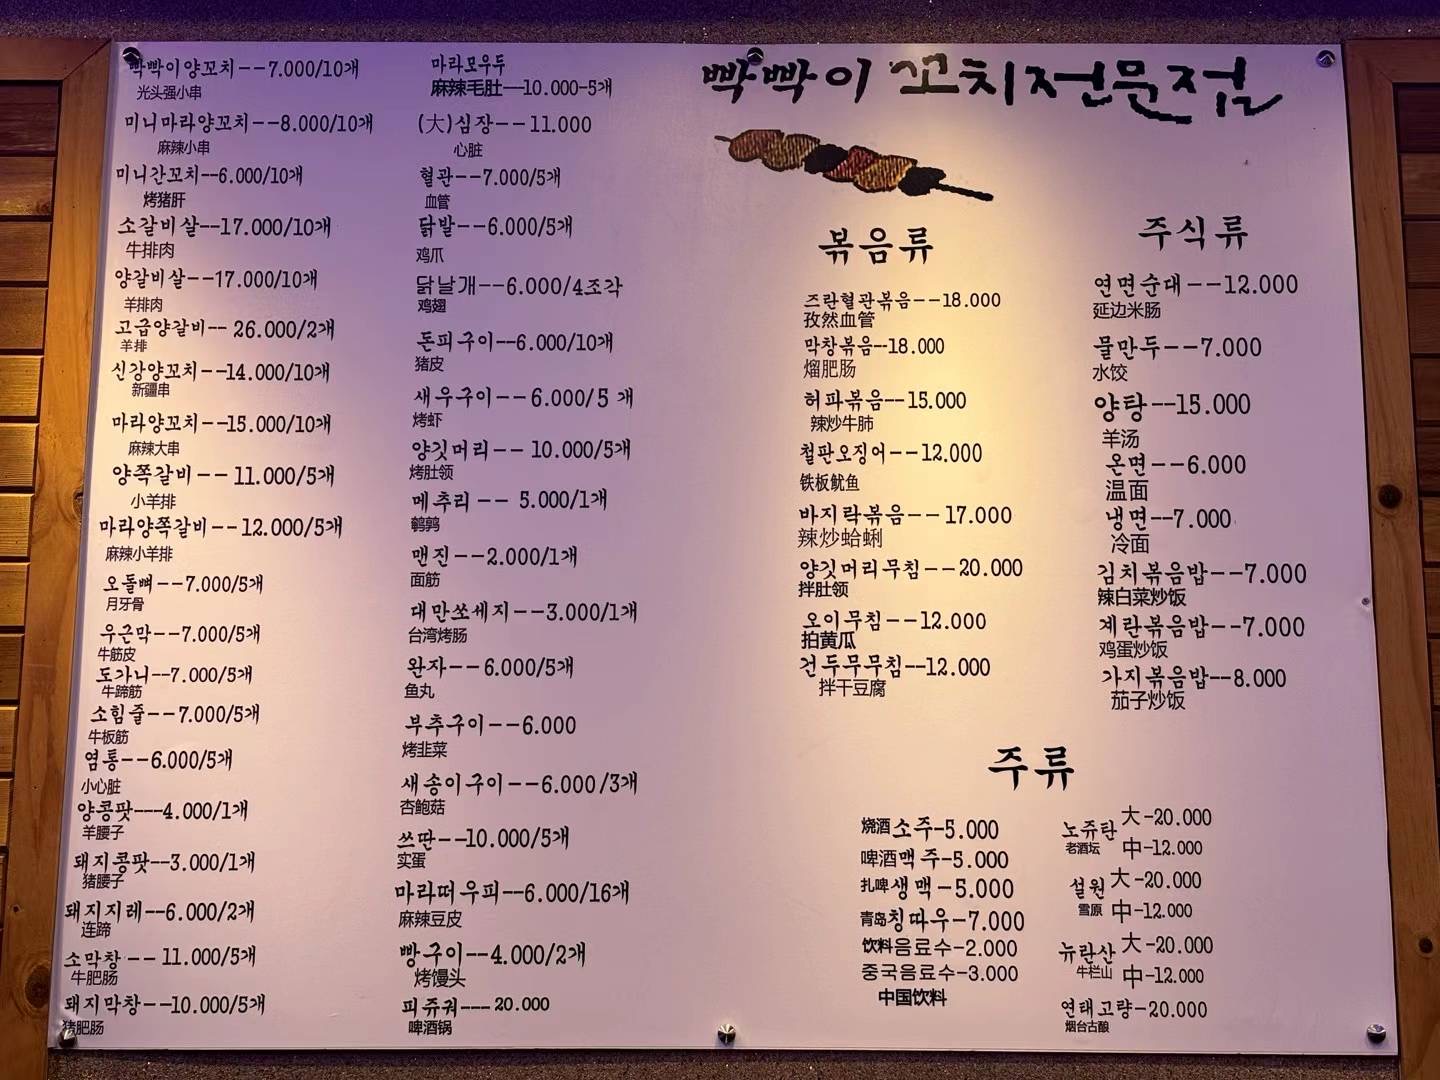 빡빡이양꼬치--7.000/10개
光头强小串
미니마라양꼬치--8.000/10개
麻辣小串
미니간꼬치--6.000/10개
烤猪肝
소갈비살--17.000/10개
牛排肉
양갈비살--17.000/10개
羊排肉
고급양갈비-- 26.000/2개
羊排
신강양꼬치--14.000/10개
新疆串
마라양꼬치--15.000/10개
麻辣大串
양쪽갈비-- 11.000/5개
小羊排
마라양쪽갈비-- 12.000/5개
麻辣小羊排
오돌뼈--7.000/5개
月牙骨
우근막--7.000/5개
牛筋皮
도가니--7.000/5개
牛蹄筋
소힘줄--7.000/5개
牛板筋
염통--6.000/5개
小心脏
양콩팟---4.000/1개
羊腰子
돼지콩팟--3.000/1개
猪腰子
돼지지레--6.000/2개
连蹄
소막창-- 11.000/5개
牛肥肠
돼지막창--10.000/5개
猪肥肠
마라모우두
麻辣毛肚--10.000-5개
(大)심장--11.000
心脏
혈관--7.000/5개
血管
닭발--6.000/5개
鸡爪
닭날개--6.000/4조각
鸡翅
돈피구이--6.000/10개
猪皮
새우구이--6.000/5 개
烤虾
양깃머리-- 10.000/5개
烤肚领
메추리-- 5.000/1개
鹌鹑
맨진--2.000/1개
面筋
대만쏘세지--3.000/1개
台湾烤肠
완자--6.000/5개
鱼丸
부추구이--6.000
烤韭菜
새송이구이--6.000/3개
杏鲍菇
쓰딴--10.000/5개
实蛋
마라떠우피--6.000/16개
麻辣豆皮
빵구이--4.000/2개
烤馒头
피쥬궈---20.000
啤酒锅
빡빡이 꼬치전문점
볶음류
즈란혈관볶음--18.000
孜然血管
막창볶음--18.000
熘肥肠
허파볶음--15.000
辣炒牛肺
철판오징어--12.000
铁板鱿鱼
바지락볶음--17.000
辣炒蛤蜊
양깃머리무침--20.000
拌肚领
오이무침--12.000
拍黄瓜
건두무무침--12.000
拌干豆腐
주식류
연면순대--12.000
延边米肠
물만두--7.000
水饺
양탕--15.000
羊汤
온면--6.000
温面
냉면--7.000
冷面
김치볶음밥--7.000
辣白菜炒饭
계란볶음밥--7.000
鸡蛋炒饭
가지볶음밥--8.000
茄子炒饭
주류
烧酒소주-5.000
啤酒맥주-5.000
扎啤생맥-5.000
青岛칭따우-7.000
饮料음료수-2.000
중국음료수-3.000
中国饮料
노쥬탄 大-20.000
老酒坛 中-12.000
설원 大-20.000
雪原 中-12.000
뉴란산 大-20.000
牛栏山 中-12.000
연태고량-20.000
烟台古酿